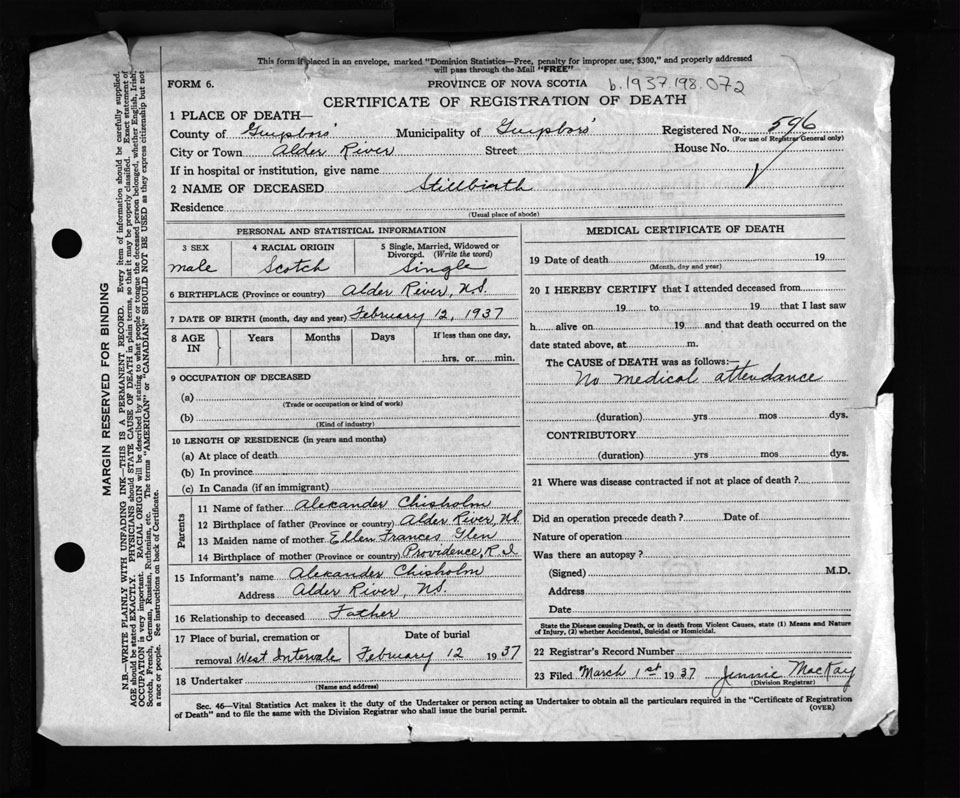 This form if placed in an envelope, marked "Dominion Statistics—Free, penalty for improper use, $300," and properly addressed
will pass through the Mail "FREE"
FORM 6. PROVINCE OF NOVA SCOTIA b.1937.198.072
CERTIFICATE OF REGISTRATION OF DEATH
1 PLACE OF DEATH—
County of Guysboro' Municipality of Guysboro' Registered No. 596
(For use of Registrar General only)
City or Town Alder River Street House No.
If in hospital or institution, give name
2 NAME OF DECEASED Stillbirth
Residence
(Usual place of abode)
PERSONAL AND STATISTICAL INFORMATION
3 SEX 4 RACIAL ORIGIN 5 Single, Married, Widowed or
Divorced. (Write the word)
male Scotch Single
6 BIRTHPLACE (Province or country) Alder River, N.S.
7 DATE OF BIRTH (month, day and year) February 12, 1937
8 AGE IN Years Months Days If less than one day,
hrs. or min.
9 OCCUPATION OF DECEASED
(a)
(Trade or occupation or kind of work)
(b)
(Kind of industry)
10 LENGTH OF RESIDENCE (in years and months)
(a) At place of death
(b) In province
(c) In Canada (if an immigrant)
Parents
11 Name of father Alexander Chisholm
12 Birthplace of father (Province or country) Alder River, N.S.
13 Maiden name of mother Ellen Frances Glen
14 Birthplace of mother (Province or country) Providence, R.I
15 Informant's name Alexander Chisholm
Address Alder River, N.S.
16 Relationship to deceased Father
17 Place of burial, cremation or Date of burial
removal West Intervale February 12 1937
18 Undertaker
(Name and address)
MEDICAL CERTIFICATE OF DEATH
19 Date of death 19
(Month, day and year)
20 I HEREBY CERTIFY that I attended deceased from
19 to 19 that I last saw
h alive on 19 and that death occurred on the
date stated above, at m.
The CAUSE of DEATH was as follows:—
No medical attendance
(duration) yrs mos dys.
CONTRIBUTORY
(duration) yrs mos dys.
21 Where was disease contracted if not at place of death?
Did an operation precede death? Date of
Nature of operation
Was there an autopsy?
(Signed) M.D.
Address
Date
State the Disease causing Death, or in death from Violent Causes, state (1) Means and Nature
of Injury, (2) whether Accidental, Suicidal or Homicidal.
22 Registrar's Record Number
23 Filed March 1st 1937 Jennie MacKay
(Division Registrar)
Sec. 46—Vital Statistics Act makes it the duty of the Undertaker or person acting as Undertaker to obtain all the particulars required in the "Certificate of Registration
of Death" and to file the same with the Division Registrar who shall issue the burial permit. (OVER)
MARGIN RESERVED FOR BINDING
N.B.—WRITE PLAINLY WITH UNFADING INK—THIS IS A PERMANENT RECORD. Every item of information should be carefully supplied.
AGE should be stated EXACTLY. PHYSICIANS should STATE CAUSE OF DEATH in plain terms, so that it may be properly classified. Exact statement of
OCCUPATION is very important. RACIAL ORIGIN will be described by stating to what people or tongue the deceased person belonged, whether English, Irish,
Scotch, French, German, Russian, Ruthenian, etc. The terms "AMERICAN" or "CANADIAN" SHOULD NOT BE USED as they express citizenship but not
a race or people. See instructions on back of Certificate.